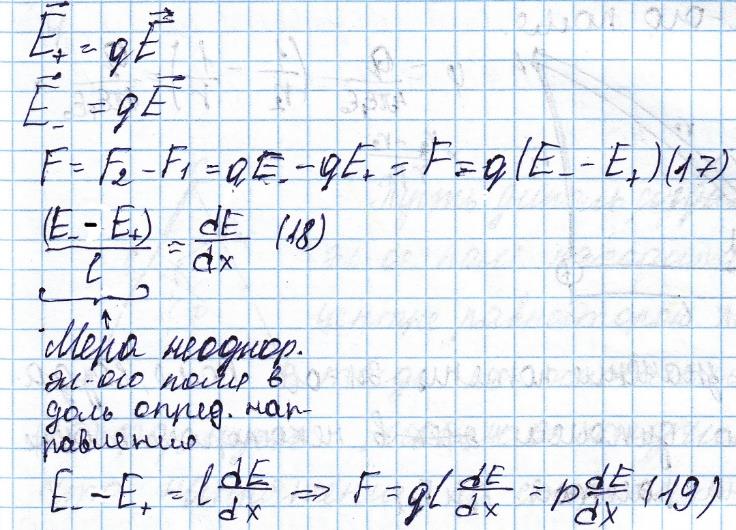 E⃗₊ = qE⃗
E⃗₋ = qE⃗
F = F₂ - F₁ = qE₋ - qE₊ = F = q(E₋ - E₊) (17)
(E₋ - E₊)/l = dE/dx (18)
Мера неоднор.
эл-ого поля в
доль опред. нап-
равления
E₋ - E₊ = l dE/dx => F = ql dE/dx = p dE/dx (19)